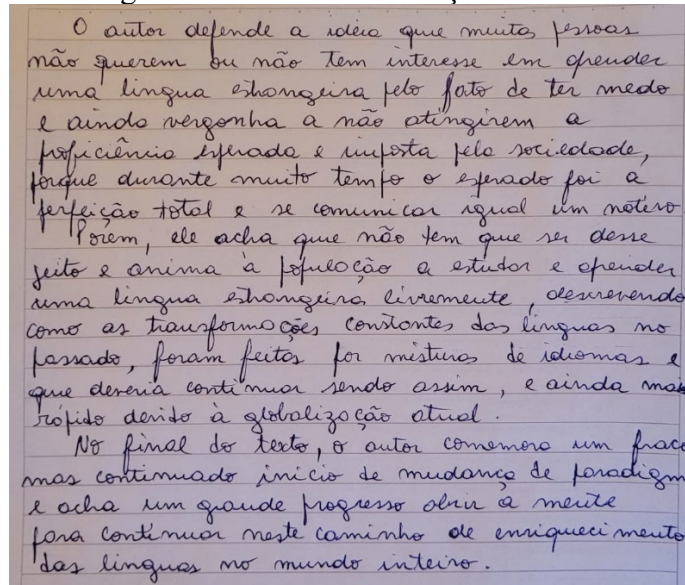 O autor defende a ideia que muitas pessoas
não querem ou não tem interesse em aprender
uma lingua estrangeira pelo fato de ter medo
e ainda vergonha a não atingirem a
proficiência esperada e imposta pela sociedade,
porque durante muito tempo o esperado foi a
perfeição total e se comunicar igual um nativo.
Porém, ele acha que não tem que ser desse
jeito e anima à população a estudar e aprender
uma lingua estrangeira livremente, descrevendo
como as transformações constantes das linguas no
passado, foram feitas por misturas de idiomas e
que deveria continuar sendo assim, e ainda mas
rápido devido à globalização atual.
No final do texto, o autor comemora um fraco
mas continuado inicio de mudança de paradigm
e acha um grande progresso abrir a mente
para continuar neste caminho de enriquecimento
das linguas no mundo inteiro.